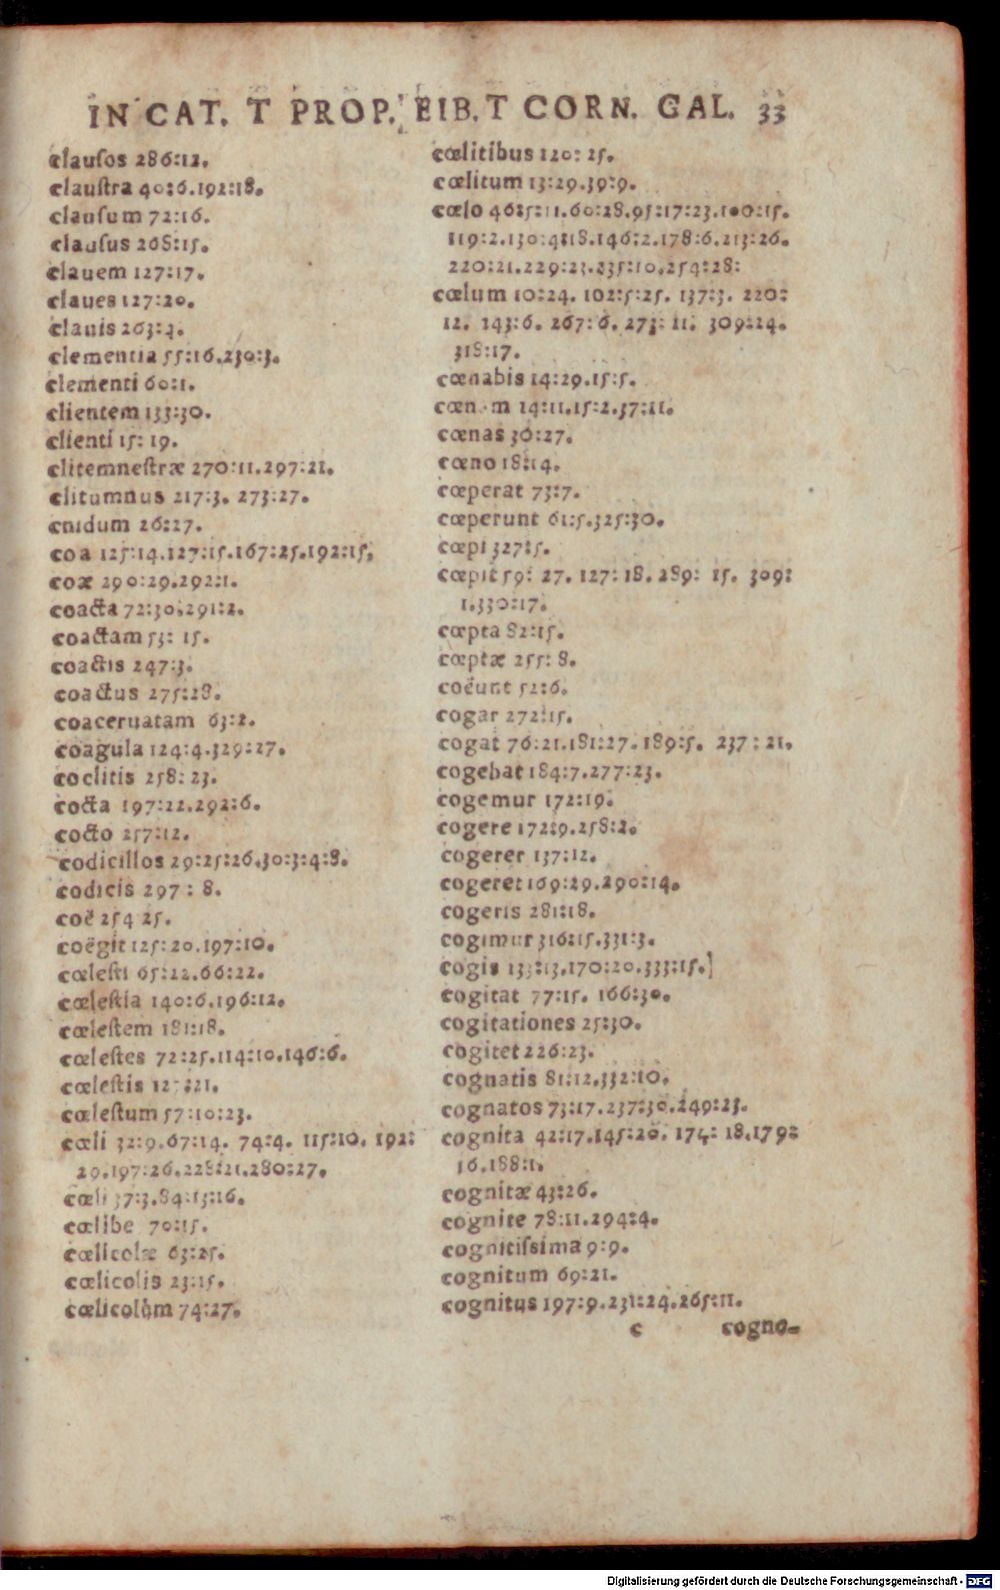 IN CAT. T PROP. EIB. T CORN. GAL. 33
clauſos 286:12.
clauſtra 40:6.192:18.
clauſum 72:16.
clauſus 268:15.
clauem 127:17.
claues 127:20.
clauis 263:4.
clementia 55:16.230:3.
clementi 60:1.
clientem 133:30.
clienti 15: 19.
clitemneſtræ 270:11.297:21.
clitumnus 217:3. 273:27.
cnidum 26:27.
coa 125:14.127:15.167:25.192:15,
coæ 290:29.292:1.
coacta 72:30.291:2.
coactam 53: 15.
coactis 247:3.
coactus 275:28.
coaceruatam 63:2.
coagula 124:4.329:27.
coclitis 258: 23.
cocta 197:22.292:6.
cocto 257:12.
codicillos 29:25:26.30:3:4:8.
codicis 297 : 8.
coë 254 25.
coëgit 125:20.197:10.
cœleſti 65:22.66:22.
cœleſtia 140:6.196:12.
cœleſtem 181:18.
cœleſtes 72:25.114:10.146:6.
cœleſtis :21.
cœleſtum 57:10:23.
cœli 32:9.67:14. 74:4. 115:10. 192:
29.197:26.228:21.280:27.
cœli 37:3.84:13:16.
cœlibe 70:15.
cœlicolæ 63:25.
cœlicolis 23:15.
cœlicolûm 74:27.
cœlitibus 120: 25.
cœlitum 13:29.39:9.
cœlo 46:5:11.60:28.95:17:23.100:15.
119:2.130:4:18.146:2.178:6.213:26.
220:21.229:23.235:10.254:28:
cœlum 10:24. 102:5:25. 137:3. 220:
12. 143:6. 267: 6. 273: 11. 309:24.
318:17.
cœnabis 14:29.15:5.
cœn m 14:11.15:2.37:11.
cœnas 30:27.
cœno 18:14.
cœperat 73:7.
cœperunt 61:5.325:30.
cœpi 327:5.
cœpit 59: 27. 127: 18. 289: 15. 309:
1.330:17.
cœpta 82:15.
cœptæ 255: 8.
coëunt 52:6.
cogar 272:15.
cogat 76:21.181:27.189:5. 237 : 21.
cogebat 184:7.277:23.
cogemur 172:19.
cogere 172:9.258:2.
cogerer 137:12.
cogeret 169:29.290:14.
cogeris 281:18.
cogimur 316:15.331:3.
cogis 133:13.170:20.333:15.]
cogitat 77:15. 166:30.
cogitationes 25:30.
cogitet 226:23.
cognatis 81:12.332:10.
cognatos 73:17.237:30.249:23.
cognita 42:17.145:20. 174: 18.179:
16.188:1.
cognitæ 43:26.
cognite 78:11.294:4.
cognitiſsima 9:9.
cognitum 69:21.
cognitus 197:9.231:24.265:11.
c cogno-
Digitalisierung gefördert durch die Deutsche Forschungsgemeinschaft - DFG